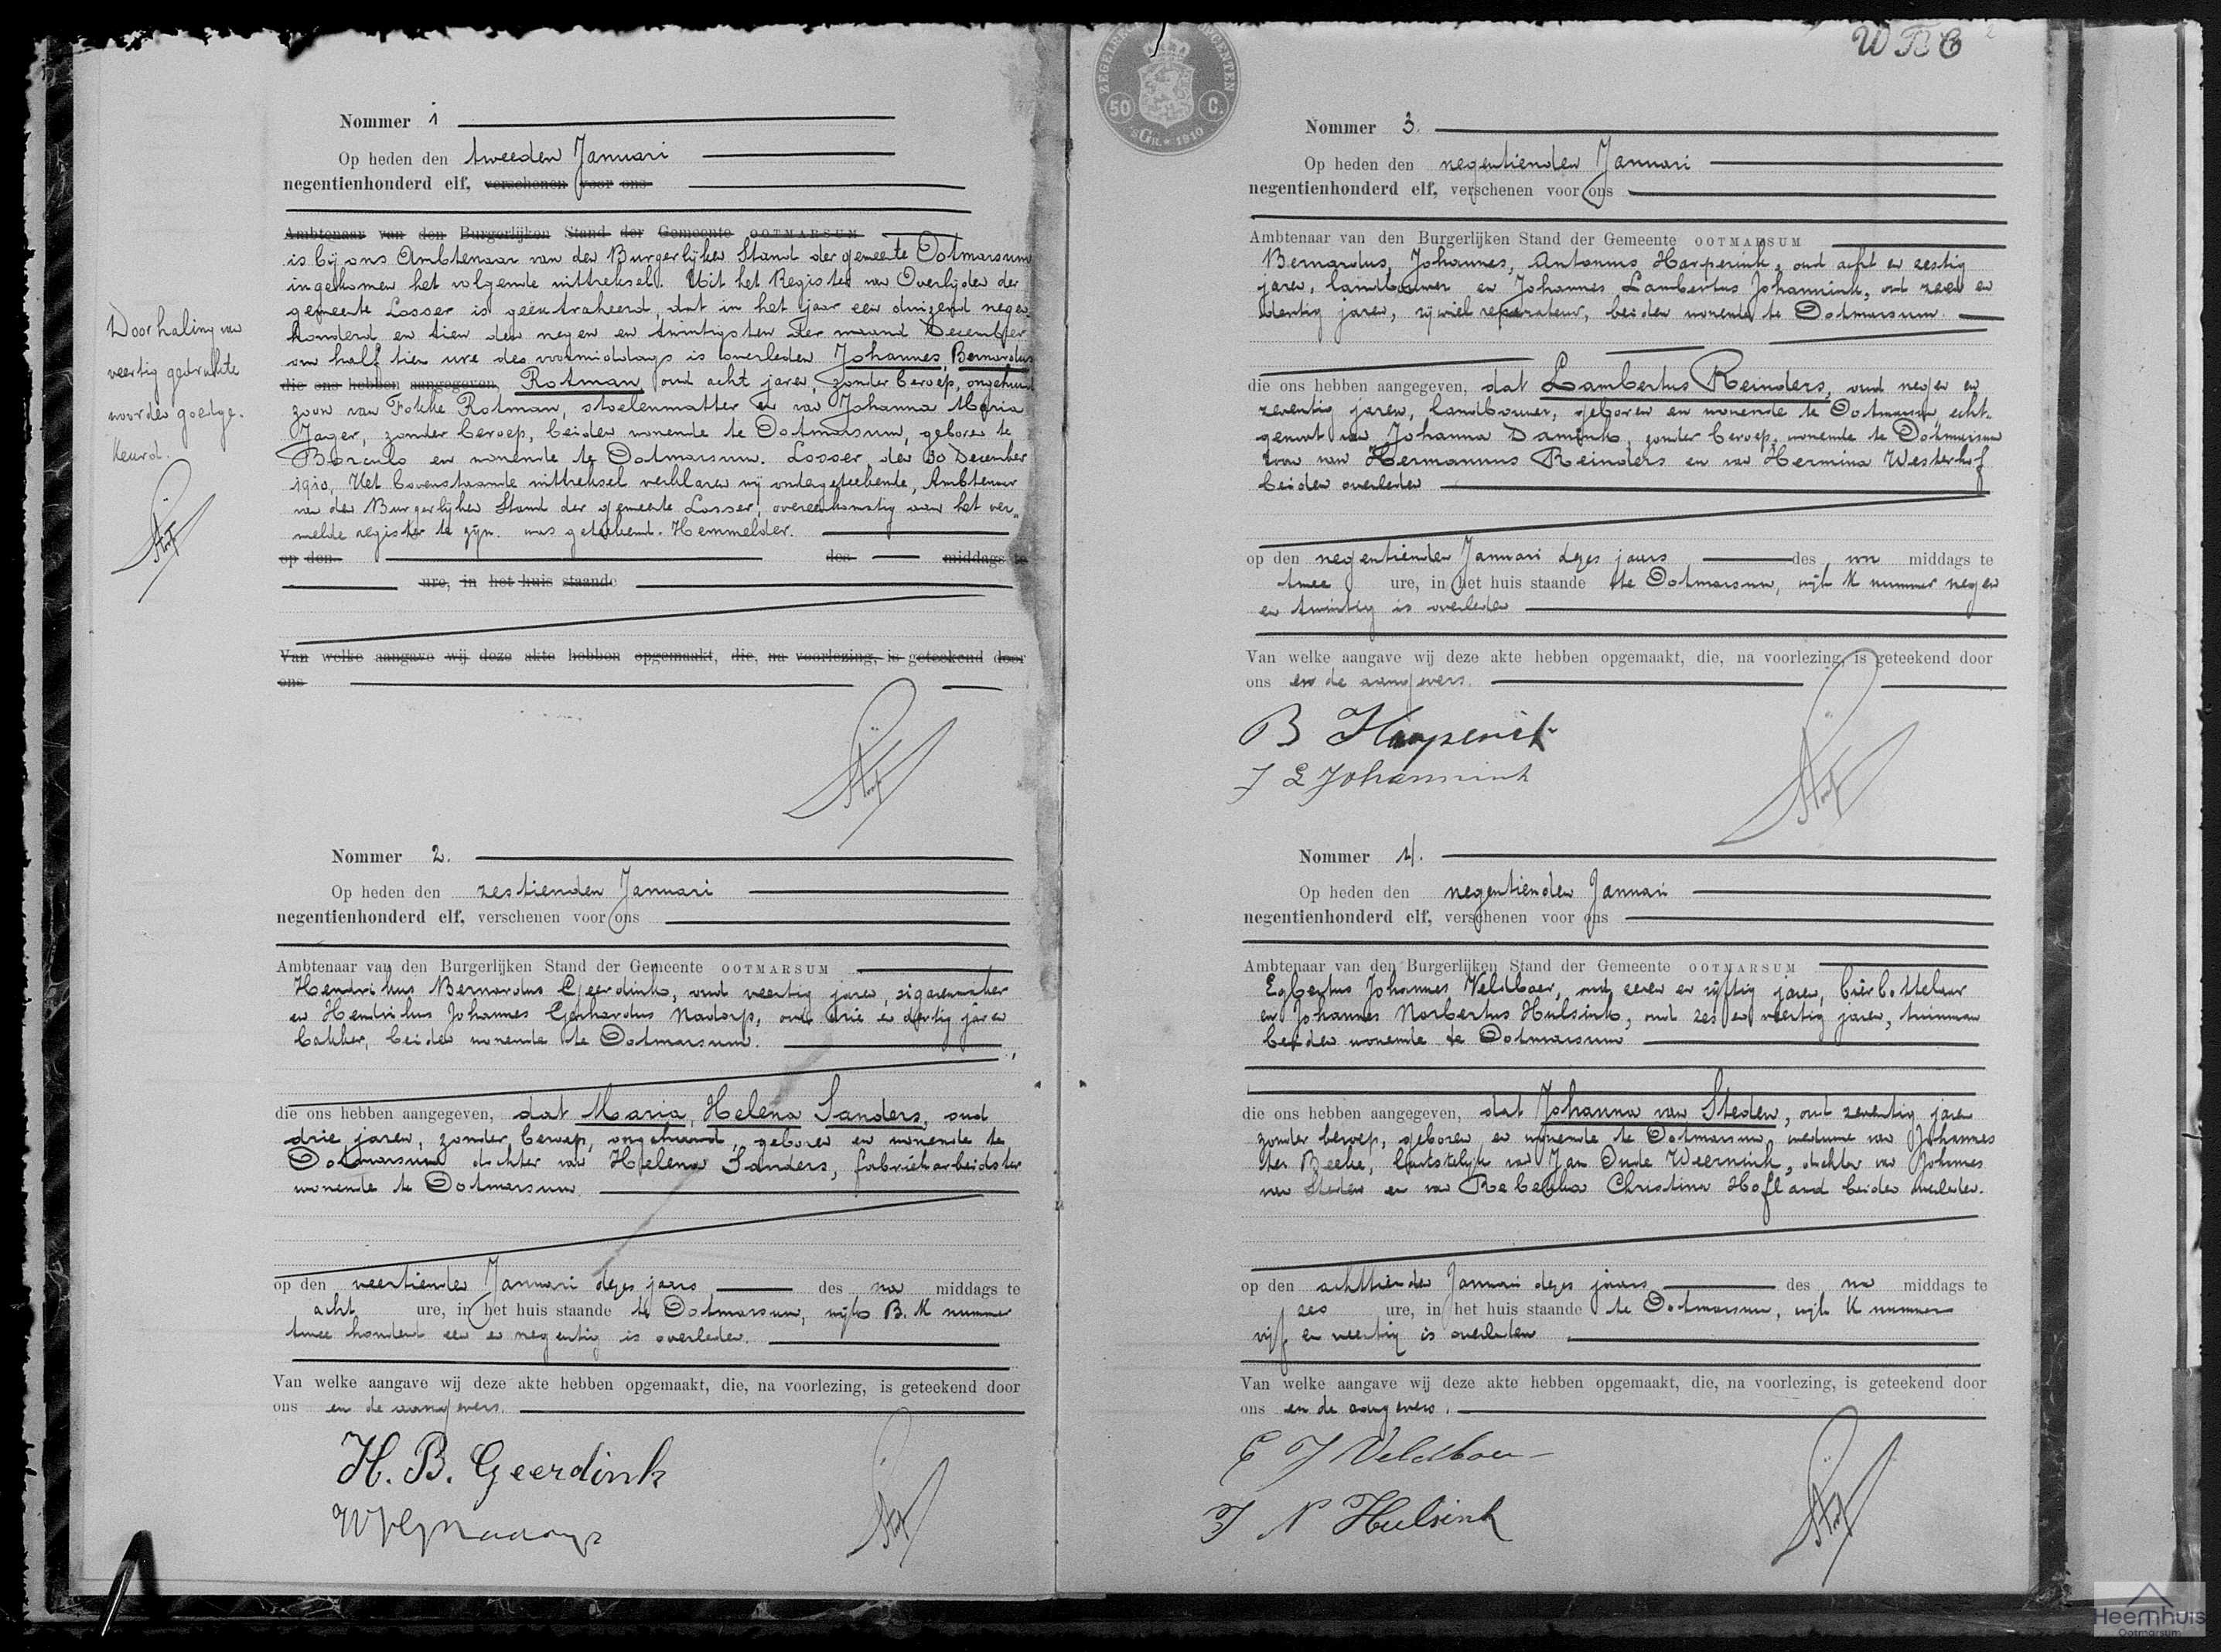 Nommer 1
Op heden den tweeden Januari
negentienhonderd elf, verschenen voor ons
Ambtenaar van den Burgerlijken Stand der Gemeente OOTMARSUM
is bij ons Ambtenaar van den Burgerlijken Stand der gemeente Ootmarsum
ingekomen het volgende uittreksel. Uit het Register van Overlijden der
gemeente Losser is geëxtraheerd, dat in het jaar een duizend negen
honderd en tien den negen en twintigsten der maand December
om half tien ure des voormiddags is overleden Johannes, Bernardus
die ons hebben aangegeven, Rotman, oud acht jaren, zonder beroep, ongehuwd
zoon van Fokke Rotman, stoelenmatter en van Johanna Maria
Jager, zonder beroep, beiden wonende te Ootmarsum, geboren te
Borculo en wonende te Ootmarsum. Losser den 30 December
1910, Het bovenstaande uittreksel verklaren wij ondergeteekende, Ambtenaar
van den Burgerlijken Stand der gemeente Losser, overeenkomstig aan het ver„
melde register te zijn. was geteekend. Hemmelder.
op den des middags te
ure, in het huis staande
Van welke aangave wij deze akte hebben opgemaakt, die, na voorlezing, is geteekend door
ons
Doorhaling van
veertig gedrukte
woorden goedge-
keurd.
Nommer 2.
Op heden den zestienden Januari
negentienhonderd elf, verschenen voor ons
Ambtenaar van den Burgerlijken Stand der Gemeente OOTMARSUM
Hendrikus Bernardus Geerdink, oud veertig jaren, sigarenmaker
en Hendrikus Johannes Gerhardus Nadorp, oud drie en dertig jaren
bakker, beiden wonende te Ootmarsum.
die ons hebben aangegeven, dat Maria, Helena Sanders, oud
drie jaren, zonder beroep, ongehuwd, geboren en wonende te
Ootmarsum dochter van Helena Sanders, fabriekarbeidster
wonende te Ootmarsum
op den veertienden Januari dezes jaars des na middags te
acht ure, in het huis staande te Ootmarsum, wijk B. K nummer
twee honderd een en negentig is overleden.
Van welke aangave wij deze akte hebben opgemaakt, die, na voorlezing, is geteekend door
ons en de aangevers.
H. B. Geerdink
ZEGELRECHT OPCENTEN
50 C.
'sGR. * 1910
WBC
Nommer 3.
Op heden den negentienden Januari
negentienhonderd elf, verschenen voor ons
Ambtenaar van den Burgerlijken Stand der Gemeente OOTMARSUM
Bernardus, Johannes, Antonius Harperink, oud acht en zestig
jaren, landbouwer en Johannes Lambertus Johannink, oud zeven en
dertig jaren, rijwiel reparateur, beiden wonende te Ootmarsum.
die ons hebben aangegeven, dat Lambertus Reinders, oud negen en
zeventig jaren, landbouwer, geboren en wonende te Ootmarsum, echt-
genoot van Johanna Damink, zonder beroep, wonende te Ootmarsum
zoon van Hermannus Reinders en van Hermina Westerhof
beiden overleden
op den negentienden Januari dezes jaars des voor middags te
twee ure, in het huis staande te Ootmarsum, wijk K nummer negen
en twintig is overleden
Van welke aangave wij deze akte hebben opgemaakt, die, na voorlezing, is geteekend door
ons en de aangevers.
B Harperink
J L Johannink
Nommer 4.
Op heden den negentienden Januari
negentienhonderd elf, verschenen voor ons
Ambtenaar van den Burgerlijken Stand der Gemeente OOTMARSUM
Egbertus Johannes Veldboer, oud eenen en vijftig jaren, bierbottelaar
en Johannes Norbertus Hulsink, oud zes en veertig jaren, tuinman
beiden wonende te Ootmarsum
die ons hebben aangegeven, dat Johanna van Steden, oud zeventig jaren
zonder beroep, geboren en wonende te Ootmarsum, weduwe van Johannes
ter Beeke, laatstelijk van Jan Oude Weernink, dochter van Johannes
van Steden en van Rebekka Christina Hofland beiden overleden.
op den achttienden Januari dezes jaars des na middags te
zes ure, in het huis staande te Ootmarsum, wijk K nummer
vijf en veertig is overleden
Van welke aangave wij deze akte hebben opgemaakt, die, na voorlezing, is geteekend door
ons en de aangevers.
E J Veldboer
J N Hulsink
Heemhuis
Ootmarsum